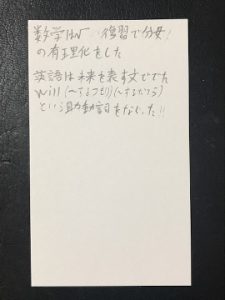 数学IIW 復習で分母
の有理化をした
英語は未来を表す文ででた
will(～するつもり)(～するだろう)
という助動詞をなら.た!!